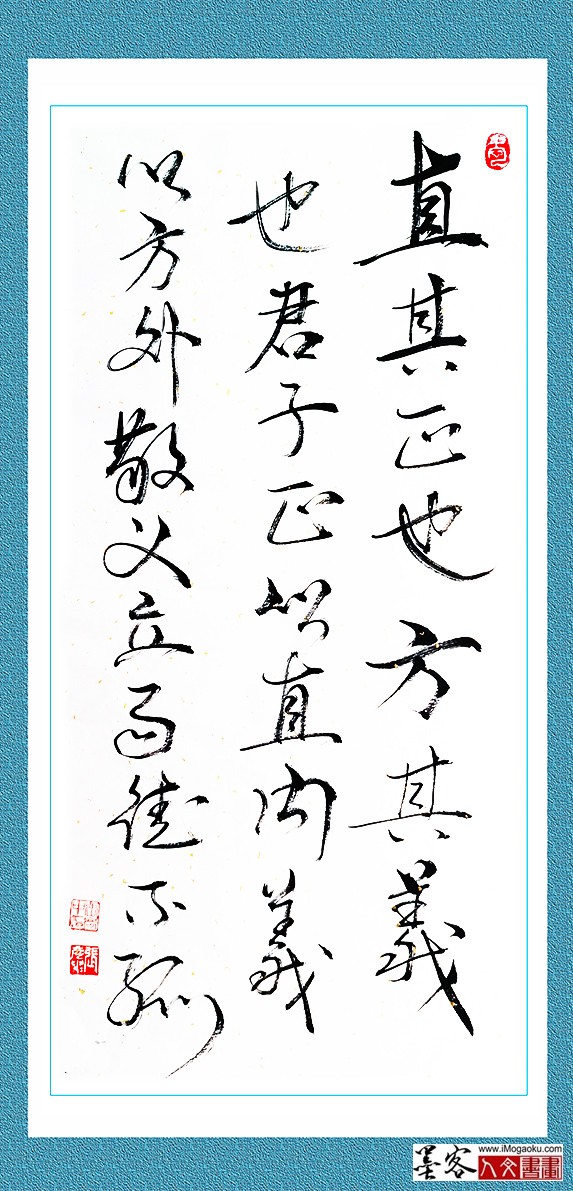 直其正也方其義
也君子正以直内義
以方外敬义立而德不孤
墨客
www.iMogaoku.com
人文書畫